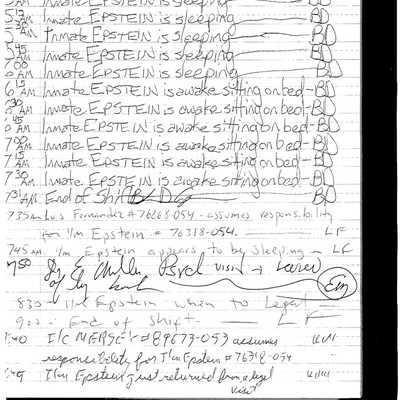 5 AM Inmate EPSTEIN is sleeping BD
5 15 AM Inmate EPSTEIN is sleeping BD
5 30 AM Inmate EPSTEIN is sleeping BD
5 45 AM Inmate EPSTEIN is sleeping BD
6 00 AM Inmate EPSTEIN is sleeping BD
6 15 AM Inmate EPSTEIN is awake sitting on bed - BD
30 AM Inmate EPSTEIN is awake sitting on bed - BD
45 AM Inmate EPSTEIN is awake sitting on bed - BD
7 00 AM Inmate EPSTEIN is awake sitting on bed - BD
7 15 AM Inmate EPSTEIN is awake sitting on bed - BD
7 30 AM Inmate EPSTEIN is awake sitting on bed - BD
AM End of Shift
735am Luis Fernandez # 76268-054 - assumes responsibility
for I/m Epstein # 76318-054. LF
745 am. I/m Epstein appears to be sleeping - LF
750 Psych visit
830 - I/m Epstein when to Legal
900 - End of Shift - LF
I/C MERSEY # 89673-053 assumes
responsibilite for I/m Epstein # 76318-054
I/m Epstein just returned from a legal
visit